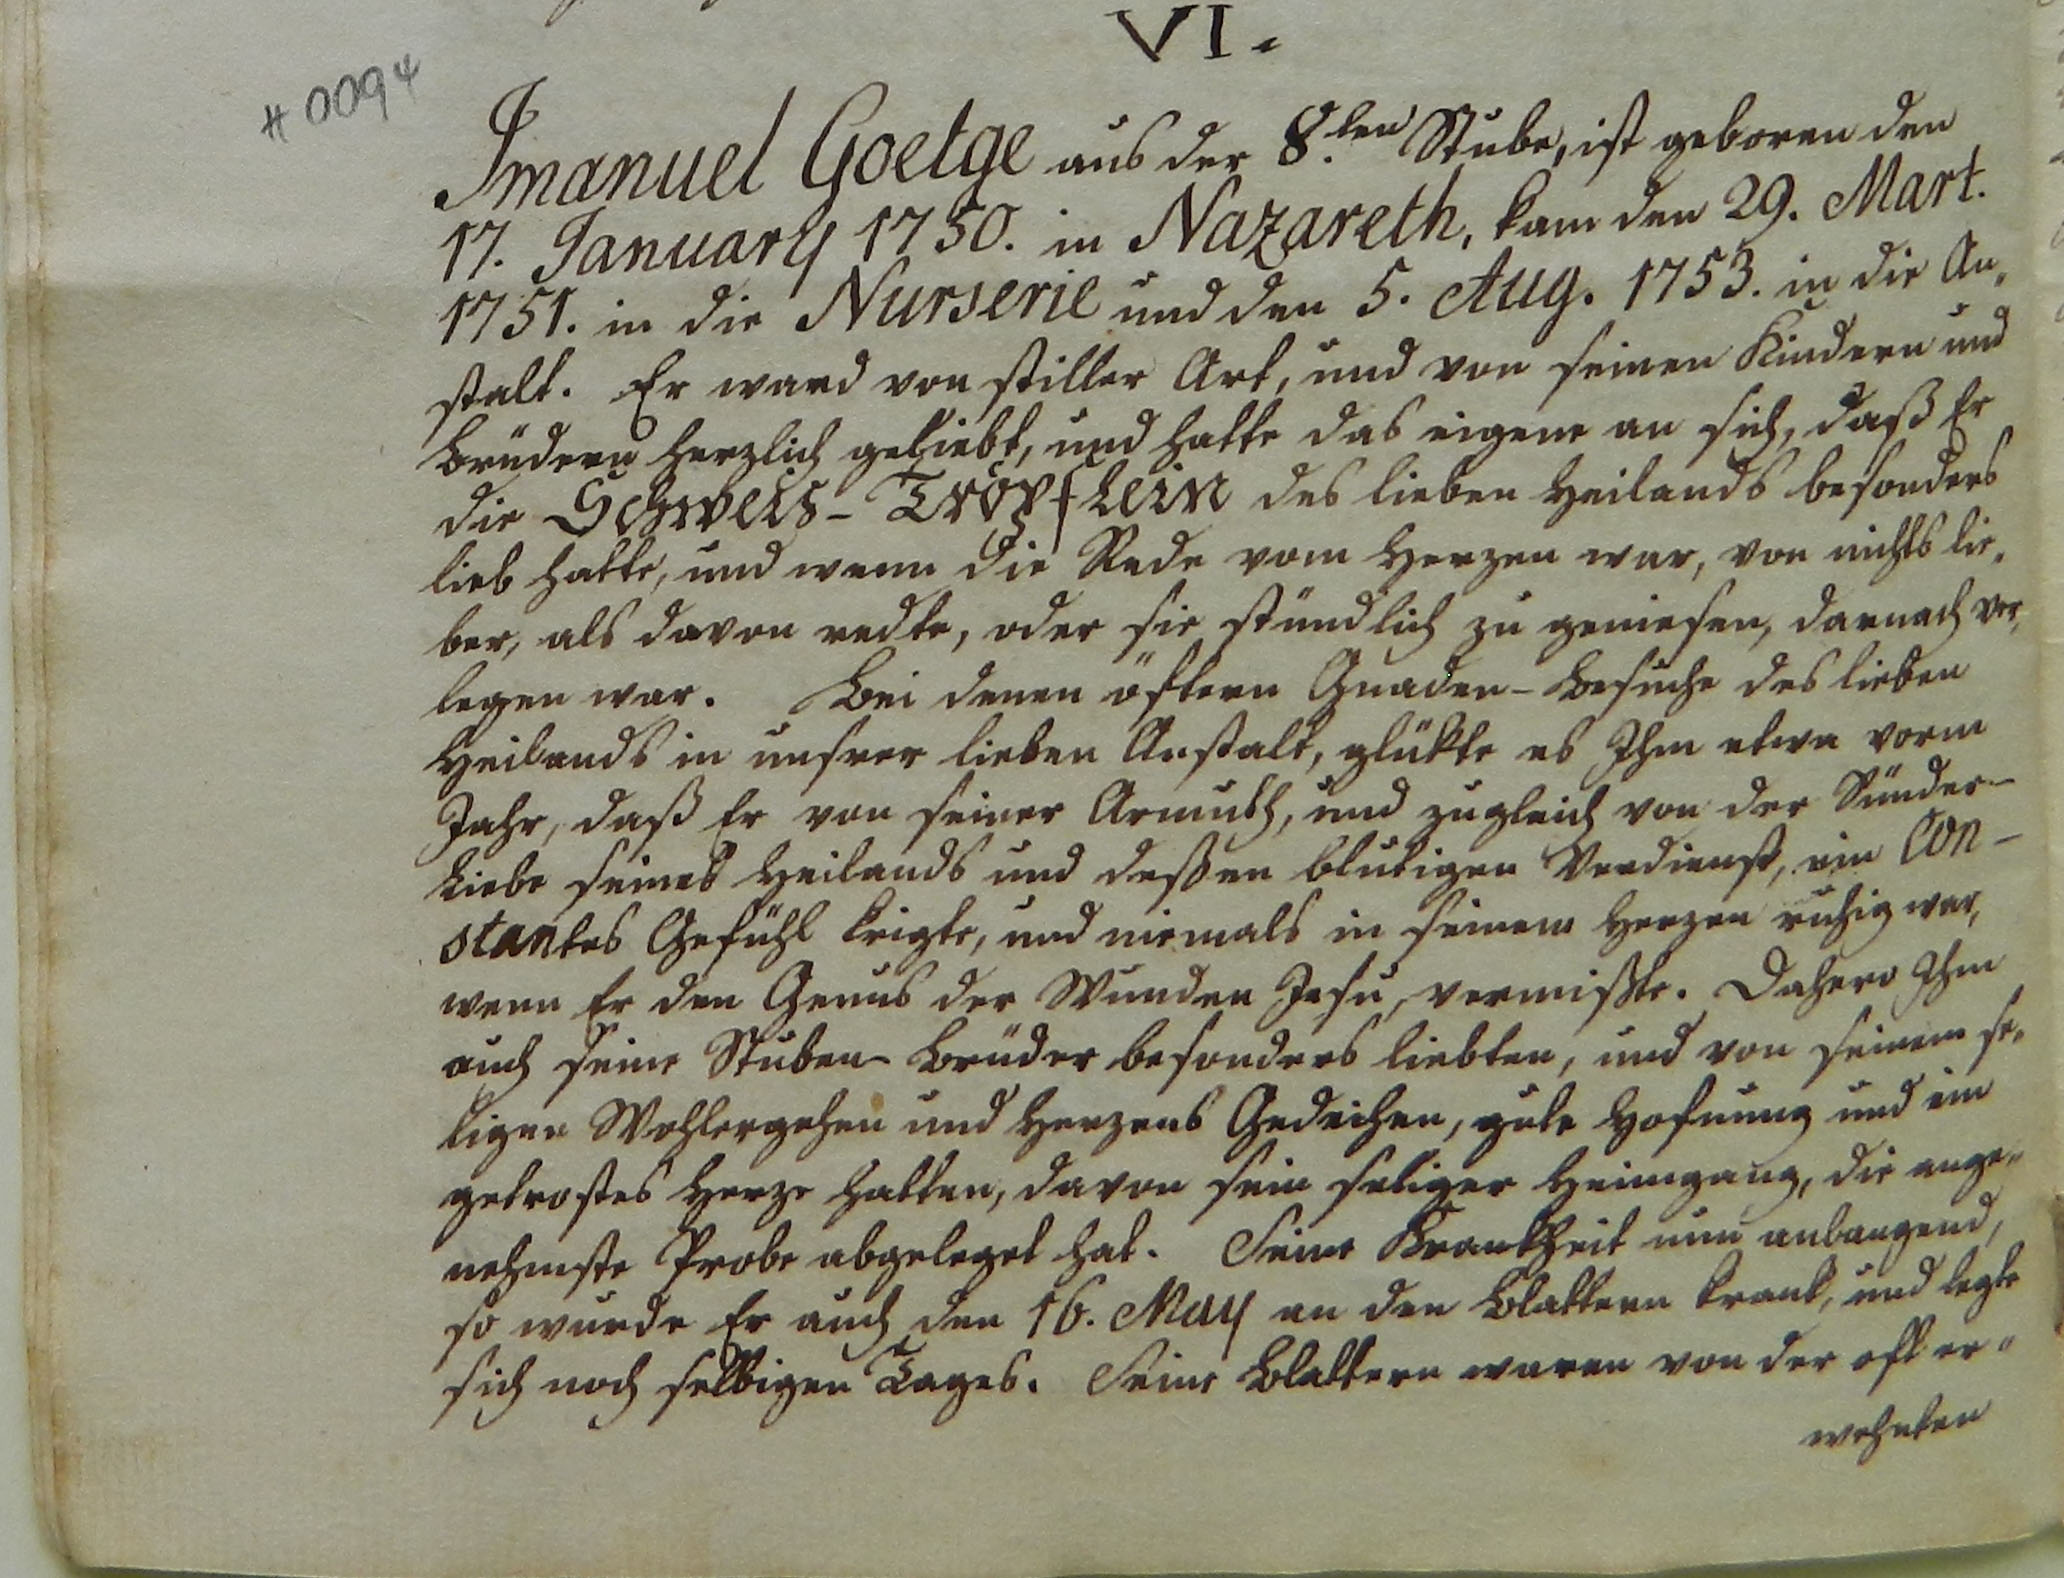 VI.
# 0094
Imanuel Goetge aus der 8.ten Stube, ist geboren den
17. January 1750. in Nazareth, kam den 29. Mart.
1751. in die Nurserie und den 5. Aug. 1753. in die An,
stalt. Er ward von stiller Art, und von seinen Kindern und
Brüdern herzlich geliebt, und hatte das eigene an sich, daß Er
die Schweis-Tröpflein des lieben Heilands besonders
lieb hatte, und wenn die Rede vom Herzen war, von nichts lie,
ber, als davon redte, oder sie stündlich zu geniesen, darnach ver,
legen war. Bei denen öftern Gnaden-Besuche des lieben
Heilands in unsrer lieben Anstalt, glükte es Ihm etwa vorm
Jahr, daß Er von seiner Armuth, und zugleich von der Sünder-
Liebe seines Heilands und deßen blutigen Verdienst, ein Con-
stantes Gefühl krigte, und niemals in seinem Herzen ruhig war,
wenn Er den Genus der Wunden Jesu, vermißte. Dahero Ihm
auch seine Stuben-Brüder besonders liebten, und von seinem se,
ligen Wohlergehen und Herzens Gedeihen, gute Hofnung und ein
getrostes Herze hatten, davon sein seliger Heimgang, die ange„
nehmste Probe abgeleget hat. Seine Krankheit nun anlangend,
so wurde Er auch den 16. May an den Blattern krank, und legte
sich noch selbigen Tages. Seine Blattern waren von der oft er„
wehnten